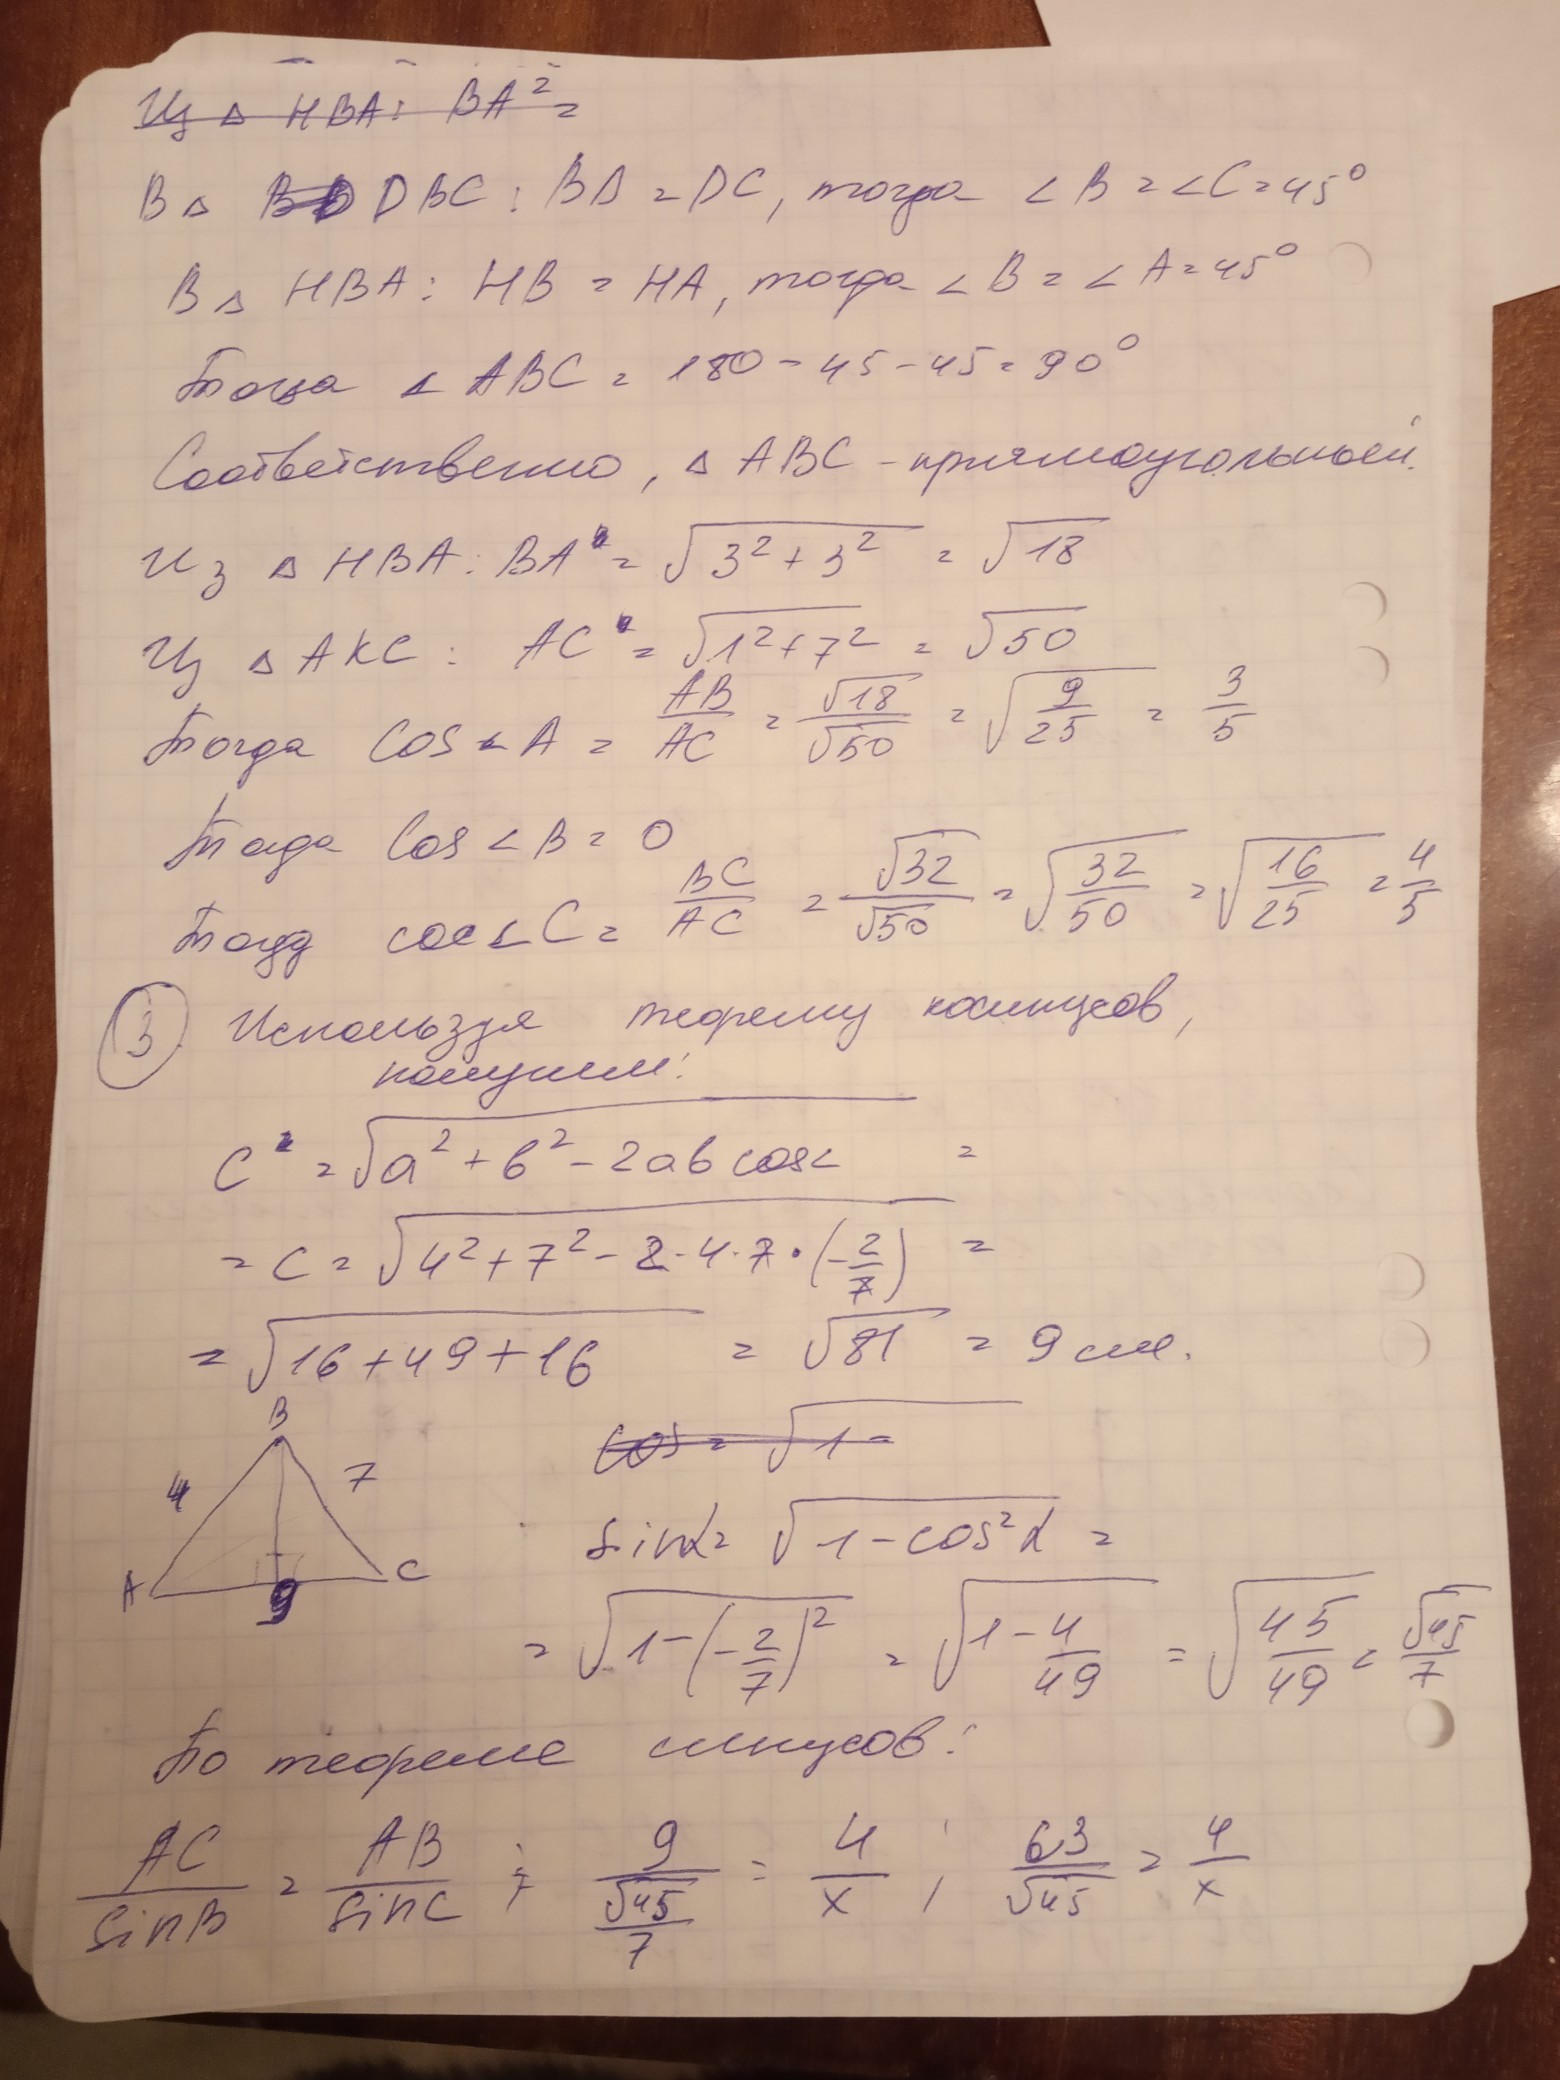 Из △ HBA: BA² =
В △ DBC: BD = DC, тогда ∠B = ∠C = 45°
В △ HBA: HB = HA, тогда ∠B = ∠A = 45°
Тогда ∠ABC = 180 - 45 - 45 = 90°
Соответственно, △ ABC - прямоугольный.
Из △ HBA: BA = √(3² + 3²) = √18
Из △ AKC: AC = √(1² + 7²) = √50
Тогда cos∠A = AB/AC = √18/√50 = √(9/25) = 3/5
Тогда cos∠B = 0
Тогда cos∠C = BC/AC = √32/√50 = √(32/50) = √(16/25) = 4/5
3 Используя теорему косинусов,
получим:
C = √(a² + b² - 2ab cos∠) =
= C = √(4² + 7² - 2·4·7·(-2/7)) =
= √(16 + 49 + 16) = √81 = 9 см.
B
4 7
A 9 C
cos = √1 -
sinα = √(1 - cos²α) =
= √(1 - (-2/7)²) = √(1 - 4/49) = √(45/49) = √45/7
По теореме синусов:
AC/sinB = AB/sinC ; 9/(√45/7) = 4/x ; 63/√45 = 4/x